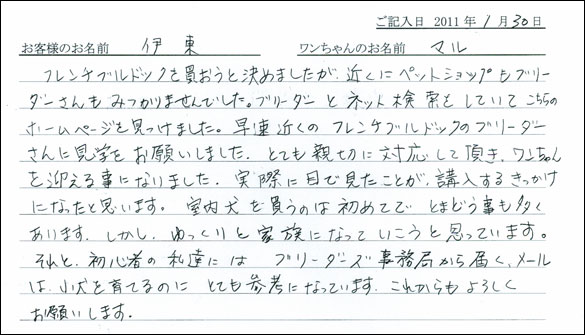 ご記入日 2011年 1月 30日
お客様のお名前 伊東 ワンちゃんのお名前 マル
フレンチブルドックを買おうと決めましたが、近くにペットショップもブリー
ダーさんもみつかりませんでした。ブリーダーとネット検索をしていてこちらの
ホームページを見つけました。早速近くのフレンチブルドックのブリーダー
さんに見学をお願いしました。とても親切に対応して頂き、ワンちゃん
を迎える事になりました。実際に目で見たことが、講入するきっかけ
になったと思います。室内犬を買うのは初めてでとまどう事も多く
あります。しかし、ゆっくりと家族になっていこうと思っています。
それと、初心者の私達にはブリーダーズ事務局から届く、メール
は、小犬を育てるのにとても参考になっています。これからもよろしく
お願いします。